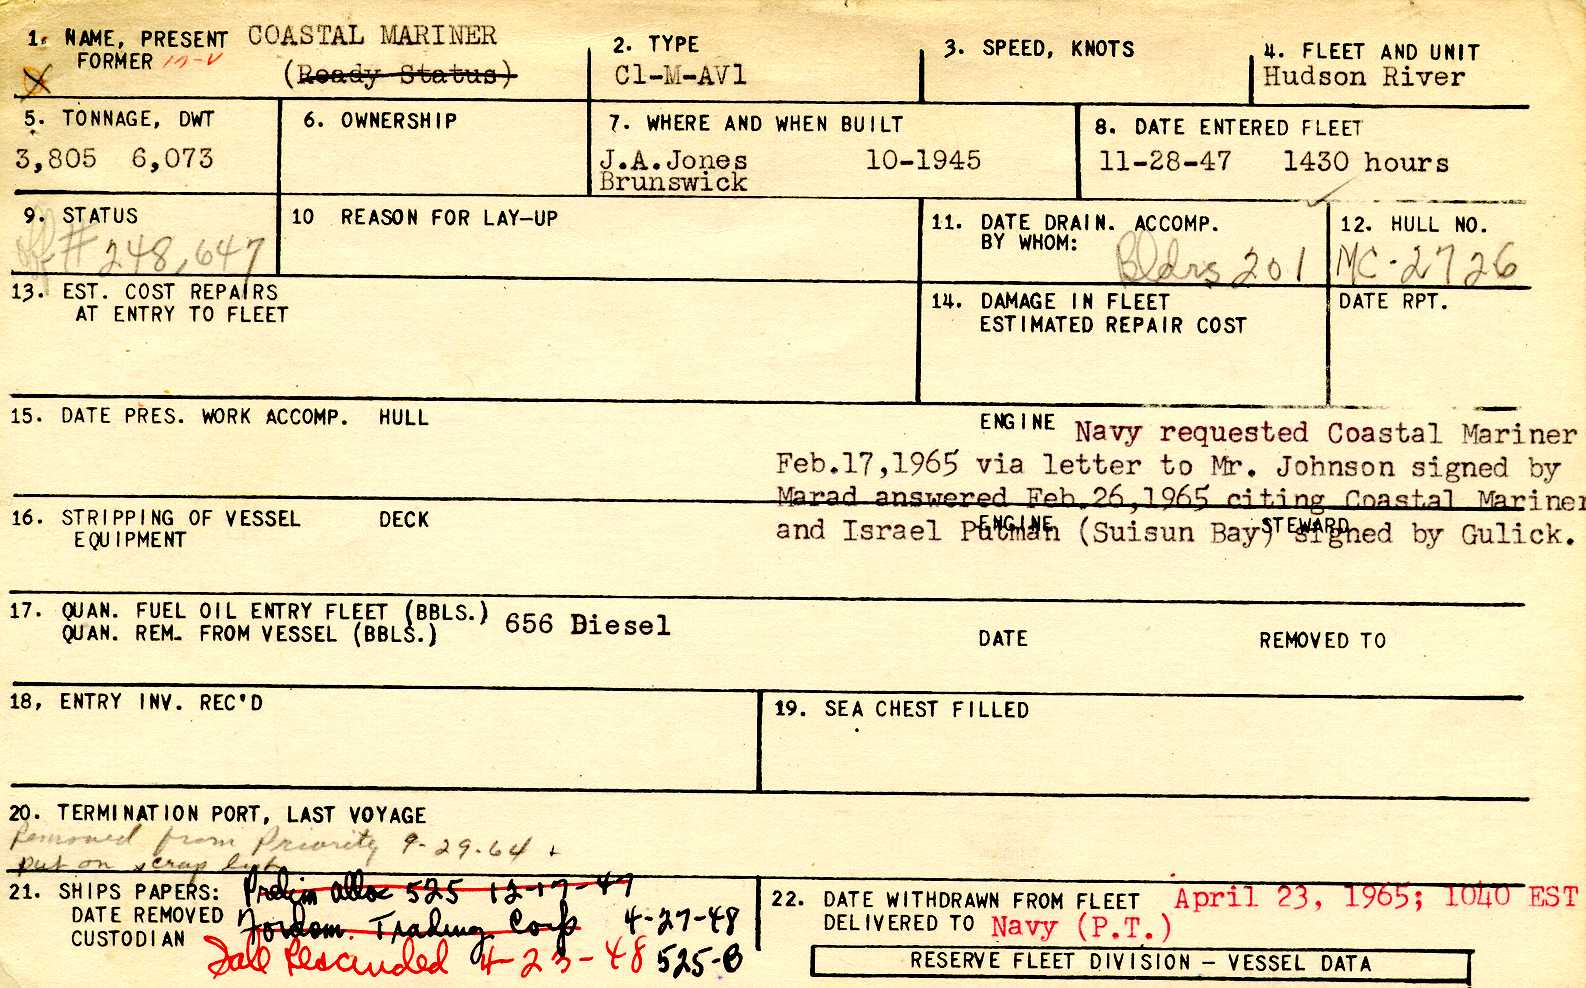 1. NAME, PRESENT COASTAL MARINER
FORMER M-V (Ready Status)
2. TYPE
C1-M-AV1
3. SPEED, KNOTS
4. FLEET AND UNIT
Hudson River
5. TONNAGE, DWT
3,805 6,073
6. OWNERSHIP
7. WHERE AND WHEN BUILT
J.A.Jones 10-1945
Brunswick
8. DATE ENTERED FLEET
11-28-47 1430 hours
9. STATUS
off # 248,647
10 REASON FOR LAY-UP
11. DATE DRAIN. ACCOMP.
BY WHOM:
Bldrs 201
12. HULL NO.
MC-2726
13. EST. COST REPAIRS
AT ENTRY TO FLEET
14. DAMAGE IN FLEET
ESTIMATED REPAIR COST
DATE RPT.
15. DATE PRES. WORK ACCOMP. HULL ENGINE
Navy requested Coastal Mariner
Feb.17,1965 via letter to Mr. Johnson signed by
Marad answered Feb.26,1965 citing Coastal Mariner
and Israel Putman (Suisun Bay) signed by Gulick.
16. STRIPPING OF VESSEL DECK ENGINE STEWARD
EQUIPMENT
17. QUAN. FUEL OIL ENTRY FLEET (BBLS.) 656 Diesel
QUAN. REM. FROM VESSEL (BBLS.) DATE REMOVED TO
18, ENTRY INV. REC'D
19. SEA CHEST FILLED
20. TERMINATION PORT, LAST VOYAGE
Removed from Priority 9-29-64 +
put on scrap list
21. SHIPS PAPERS: Prelim alloc 525 12-17-47
DATE REMOVED Trading Corp 4-27-48
CUSTODIAN Sale Rescinded 4-23-48 525-B
22. DATE WITHDRAWN FROM FLEET April 23, 1965; 1040 EST
DELIVERED TO Navy (P.T.)
RESERVE FLEET DIVISION – VESSEL DATA